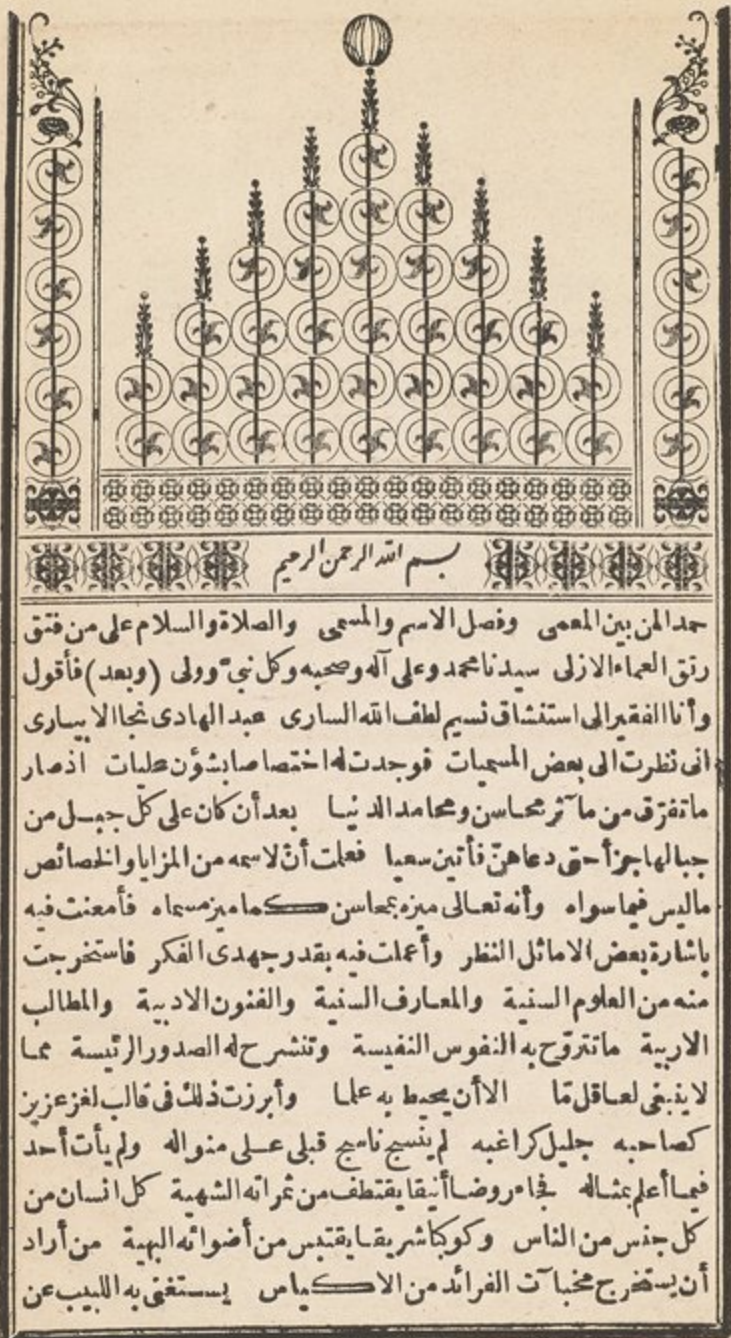 بسم الله الرحمن الرحيم
حمدا لمن بين المعمى وفصل الاسم والمسمى والصلاة والسلام على من فتق
رتق العماء الازلى سيدنا محمد وعلى آله وصحبه وكل نبىّ وولى (وبعد) فأقول
وأنا الفقير الى استنشاق نسيم لطف الله السارى عبد الهادى نجا الابيارى
انى نظرت الى بعض المسميات فوجدت له اختصاصا بشؤن عليات اذ صار
ما تفرّق من مآثر محاسن ومحامد الدنيا بعد أن كان على كلّ جبل من
جبالها جزأ حتى دعاهنّ فأتين سعيا فعلمت أنّ لاسمه من المزايا والخصائص
ما ليس فيما سواه وأنه تعالى ميزه بمحاسن كما ميز مسماه فأمعنت فيه
باشارة بعض الاماثل النظر وأعملت فيه بقدر جهدى الفكر فاستخرجت
منه من العلوم السنية والمعارف السنية والفنون الادبية والمطالب
الاربية ما تتروّح به النفوس النفيسة وتنشرح له الصدور الرئيسة مما
لا ينبغى لعاقل مّا الا أن يحيط به علما وأبرزت ذلك فى قالب لغز عزيز
كصاحبه جليل كراغبه لم ينسج ناسج قبلى على منواله ولم يأت أحد
فيما أعلم بمثاله فجاء روضا أنيقا يقتطف من ثمراته الشهية كل انسان من
كل جنس من الناس وكوكبا شريقا يقتبس من أضوائه البهية من أراد
أن يستخرج مخبآت الفرائد من الاكياس يستغنى به اللبيب عن